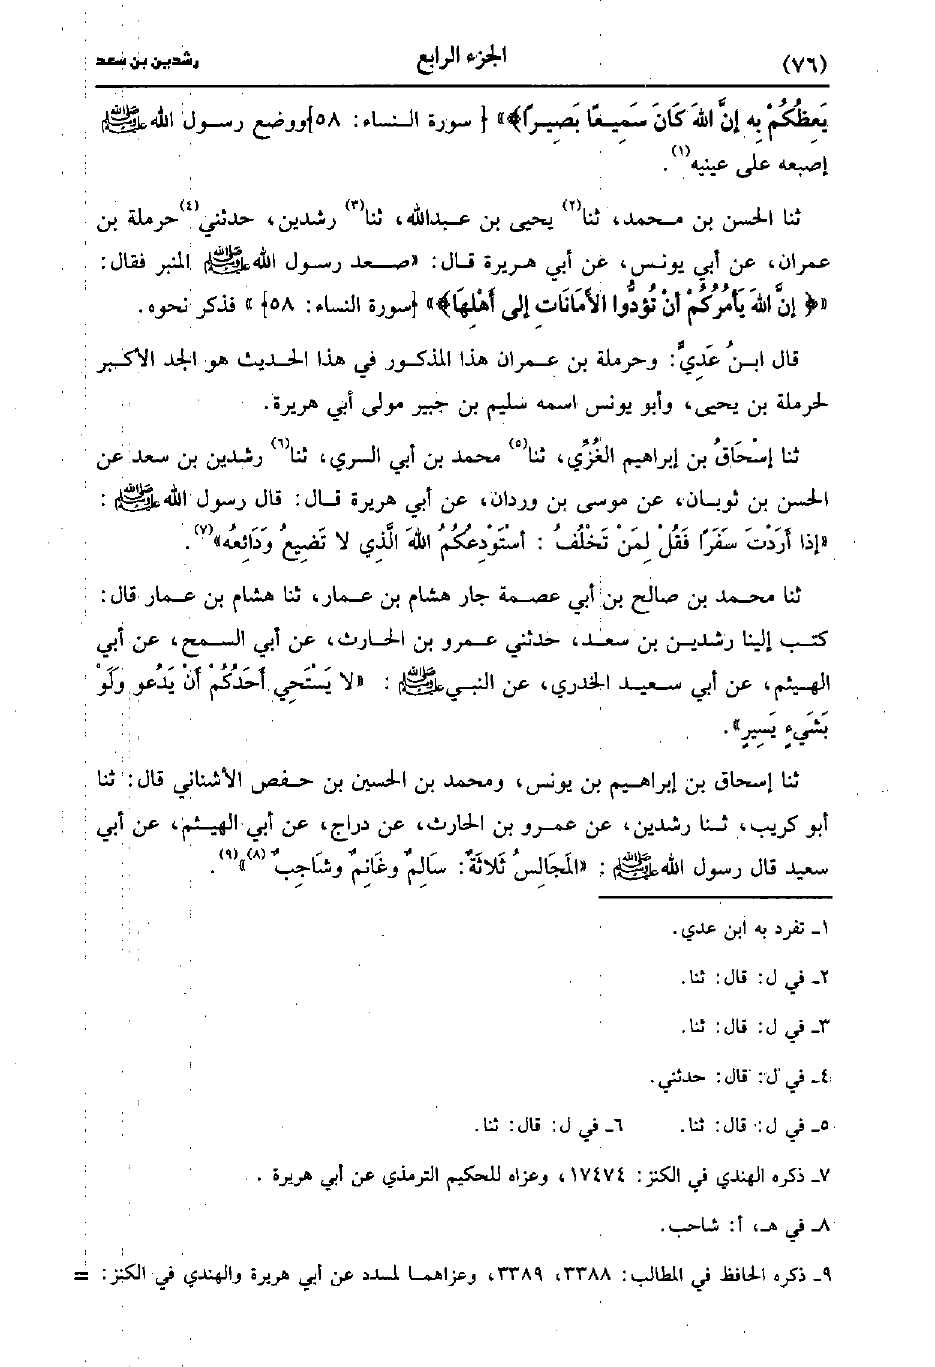 (٧٦) الجزء الرابع رشدين بن سعد
يَعِظُكُمْ بِه إنَّ اللهَ كَانَ سَمِيعًا بَصِيرًا﴾» { سورة النساء: ٥٨}ووضع رسول الله ﷺ
إصبعه على عينيه(١).
ثنا الحسن بن محمد، ثنا(٢) يحيى بن عبدالله، ثنا(٣) رشدين، حدثني(٤) حرملة بن
عمران، عن أبي يونس، عن أبي هريرة قال: «صعد رسول الله ﷺ المنبر فقال:
«﴿ إنَّ اللهَ يَأمُرُكُمْ أنْ تُؤدُّوا الأمَانَاتِ إلى أهْلِهَا﴾» {سورة النساء: ٥٨} » فذكر نحوه.
قال ابنُ عَدِيٍّ: وحرملة بن عمران هذا المذكور في هذا الحديث هو الجد الأكبر
لحرملة بن يحيى، وأبو يونس اسمه سليم بن جبير مولى أبي هريرة.
ثنا إسْحَاقُ بن إبراهيم الغُزِّي، ثنا(٥) محمد بن أبي السري، ثنا(٦) رشدين بن سعد عن
الحسن بن ثوبان، عن موسى بن وردان، عن أبي هريرة قال: قال رسول الله ﷺ :
«إذا أرَدْتَ سَفَرًا فَقُلْ لِمَنْ تَخْلُفُ : أستَوْدِعكُمُ اللهَ الَّذِي لا تَضِيعُ وَدَائِعهُ»(٧).
ثنا محمد بن صالح بن أبي عصمة جار هشام بن عمار، ثنا هشام بن عمار قال:
كتب إلينا رشدين بن سعد، حدثني عمرو بن الحارث، عن أبي السمح، عن أبي
الهيثم، عن أبي سعيد الخدري، عن النبي ﷺ : «لا يَسْتَحِي أحَدُكُمْ أنْ يَدْعو وَلَوْ
بَشَيءٍ يَسِيرٍ».
ثنا إسحاق بن إبراهيم بن يونس، ومحمد بن الحسين بن حفص الأشناني قال: ثنا
أبو كريب، ثنا رشدين، عن عمرو بن الحارث، عن دراج، عن أبي الهيثم، عن أبي
سعيد قال رسول الله ﷺ : «المَجَالِسُ ثَلاثَةٌ: سَالِمٌ وغَانِمٌ وشَاجِبٌ(٨)»(٩).
١ـ تفرد به ابن عدي.
٢ـ في ل: قال: ثنا.
٣ـ في ل: قال: ثنا.
٤ـ في ل: قال: حدثني.
٥ـ في ل: قال: ثنا. ٦ـ في ل: قال: ثنا.
٧ـ ذكره الهندي في الكنز: ١٧٤٧٤، وعزاه للحكيم الترمذي عن أبي هريرة .
٨ـ في هـ، أ: شاحب.
٩ـ ذكره الحافظ في المطالب: ٣٣٨٨، ٣٣٨٩، وعزاهما لمسدد عن أبي هريرة والهندي في الكنز: =